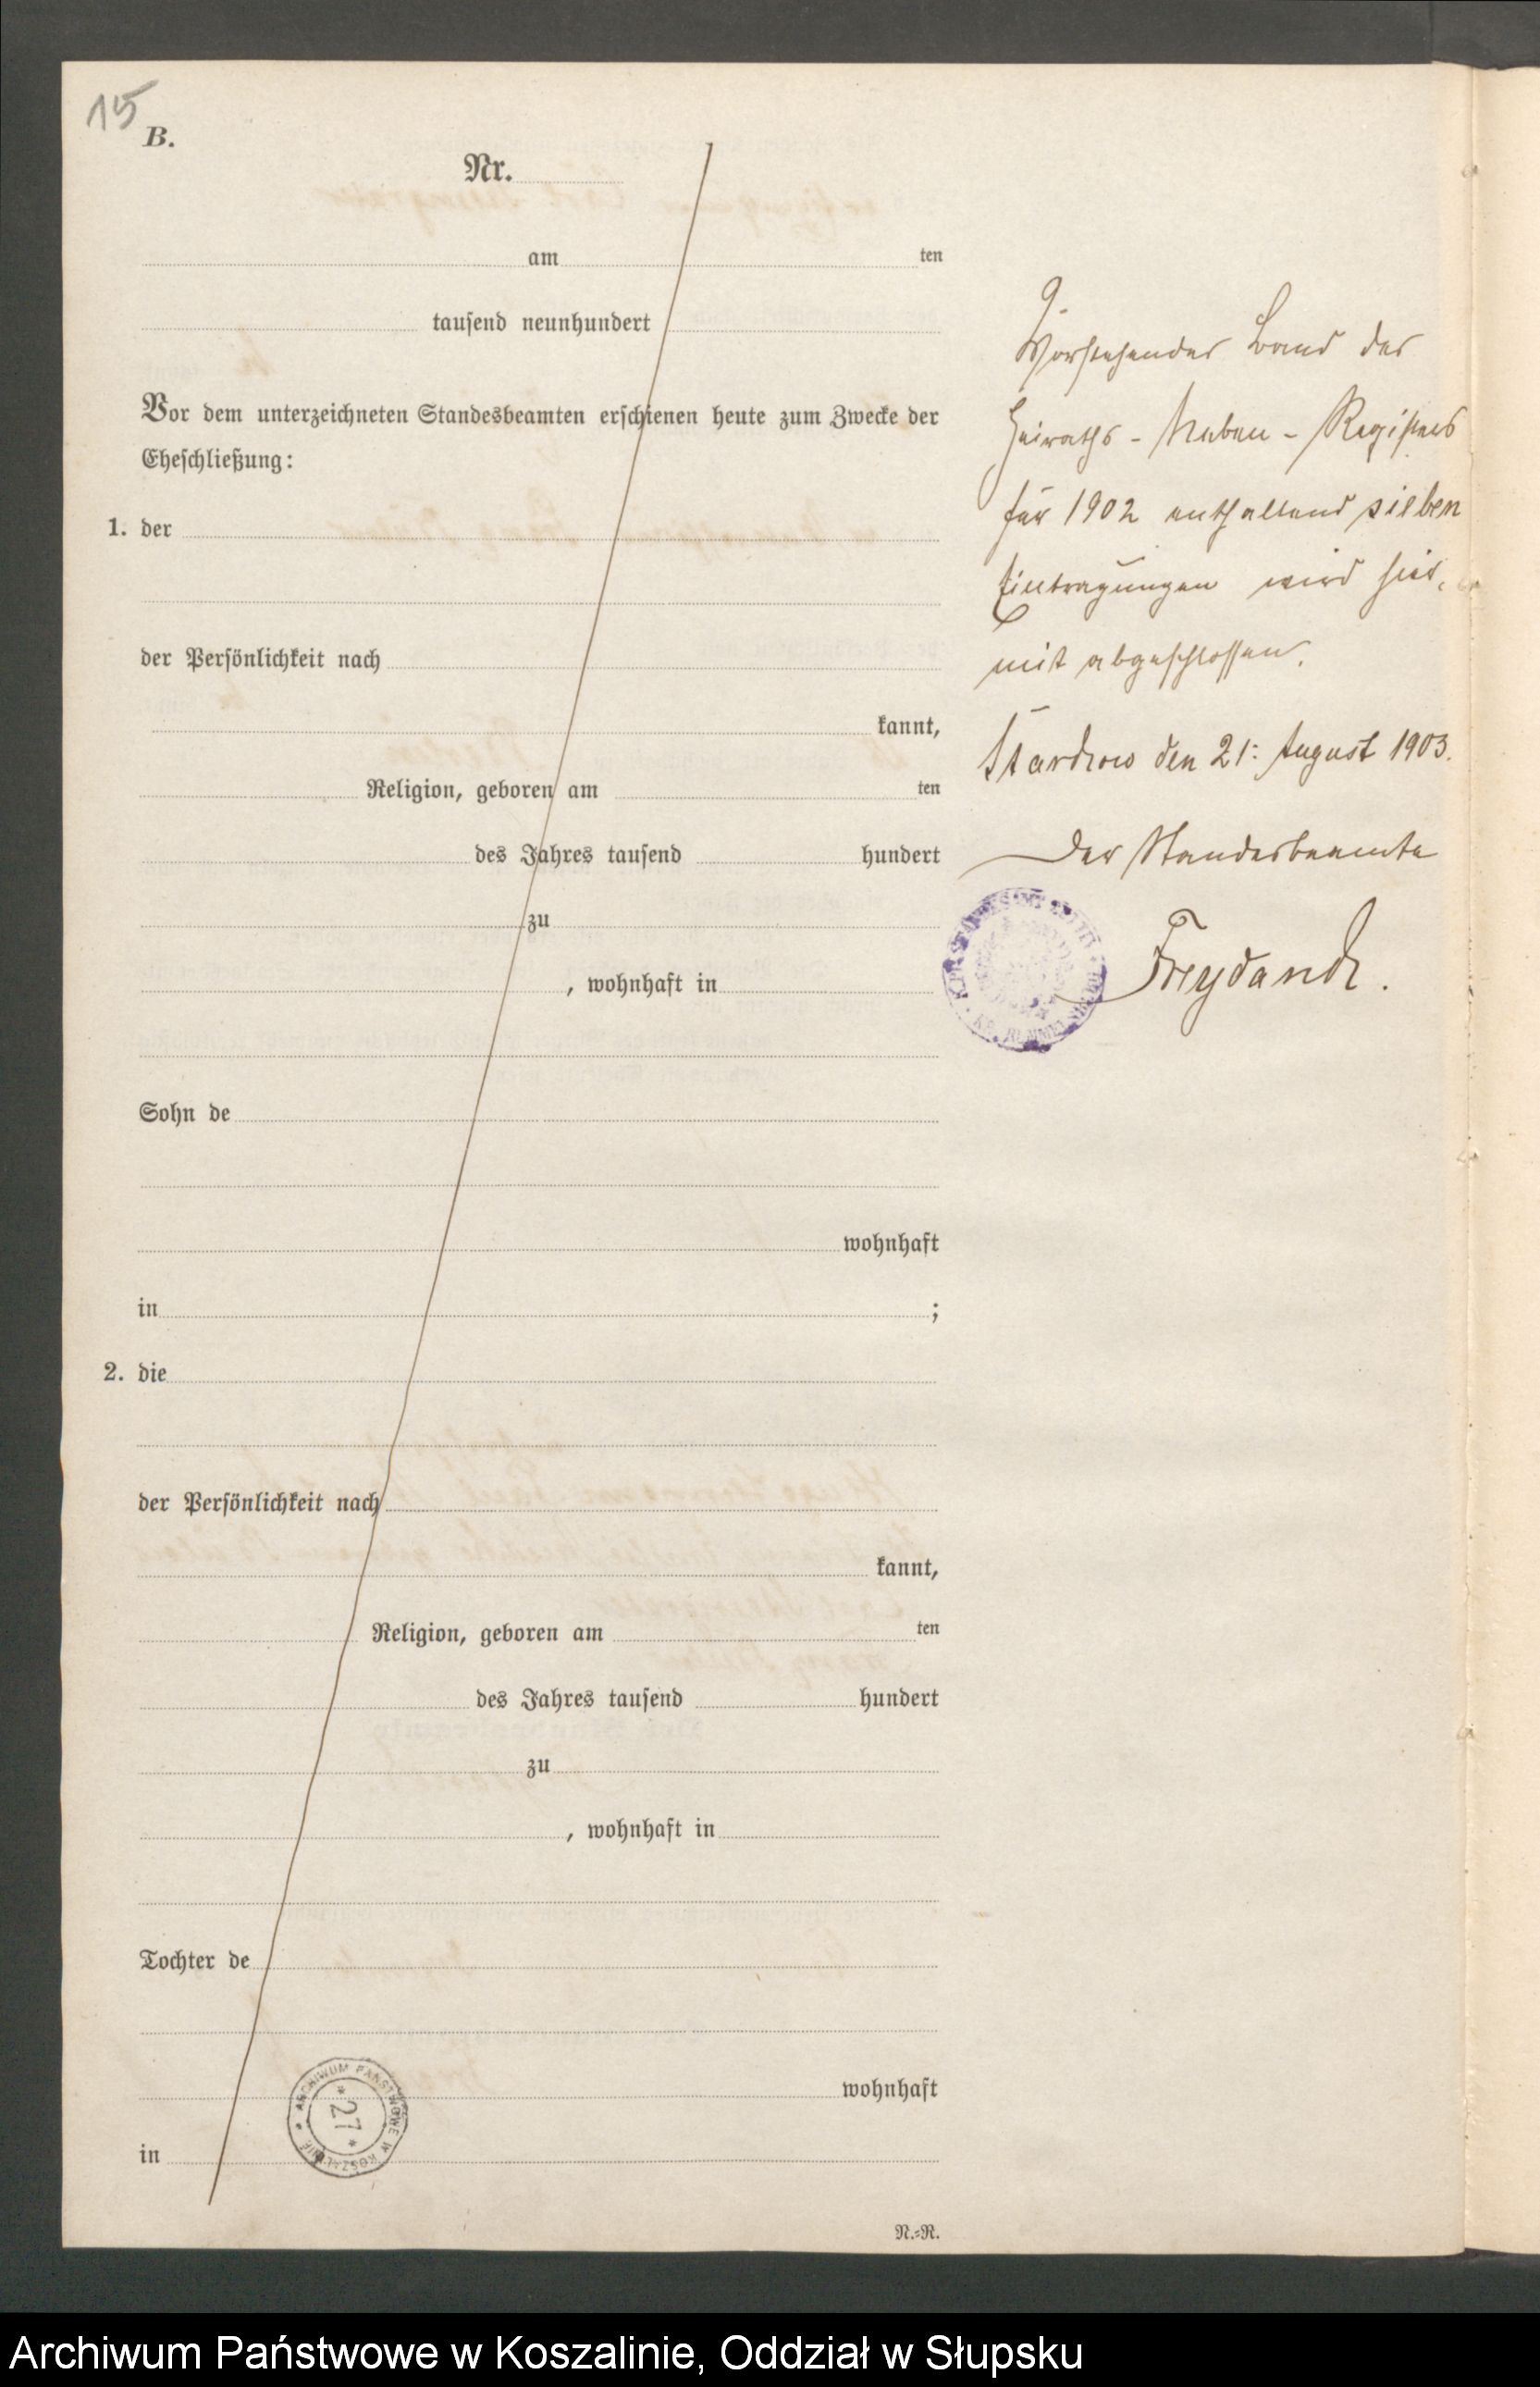 15
B.
Nr.
am ten
tausend neunhundert
Vor dem unterzeichneten Standesbeamten erschienen heute zum Zwecke der
Eheschließung:
1. der
der Persönlichkeit nach
kannt,
Religion, geboren am ten
des Jahres tausend hundert
zu
, wohnhaft in
Sohn de
wohnhaft
in ;
2. die
der Persönlichkeit nach
kannt,
Religion, geboren am ten
des Jahres tausend hundert
zu
, wohnhaft in
Tochter de
wohnhaft
in
N.=R.
Vorstehender Band des
Heiraths - Neben - Registers
für 1902 enthaltend sieben
Eintragungen wird hier-
mit abgeschlossen.
Startzow den 21. August 1903.
Der Standesbeamte
Freydanck.
ARCHIWUM PAŃSTWOWE W KOSZALINIE
* 27 *
Archiwum Państwowe w Koszalinie, Oddział w Słupsku